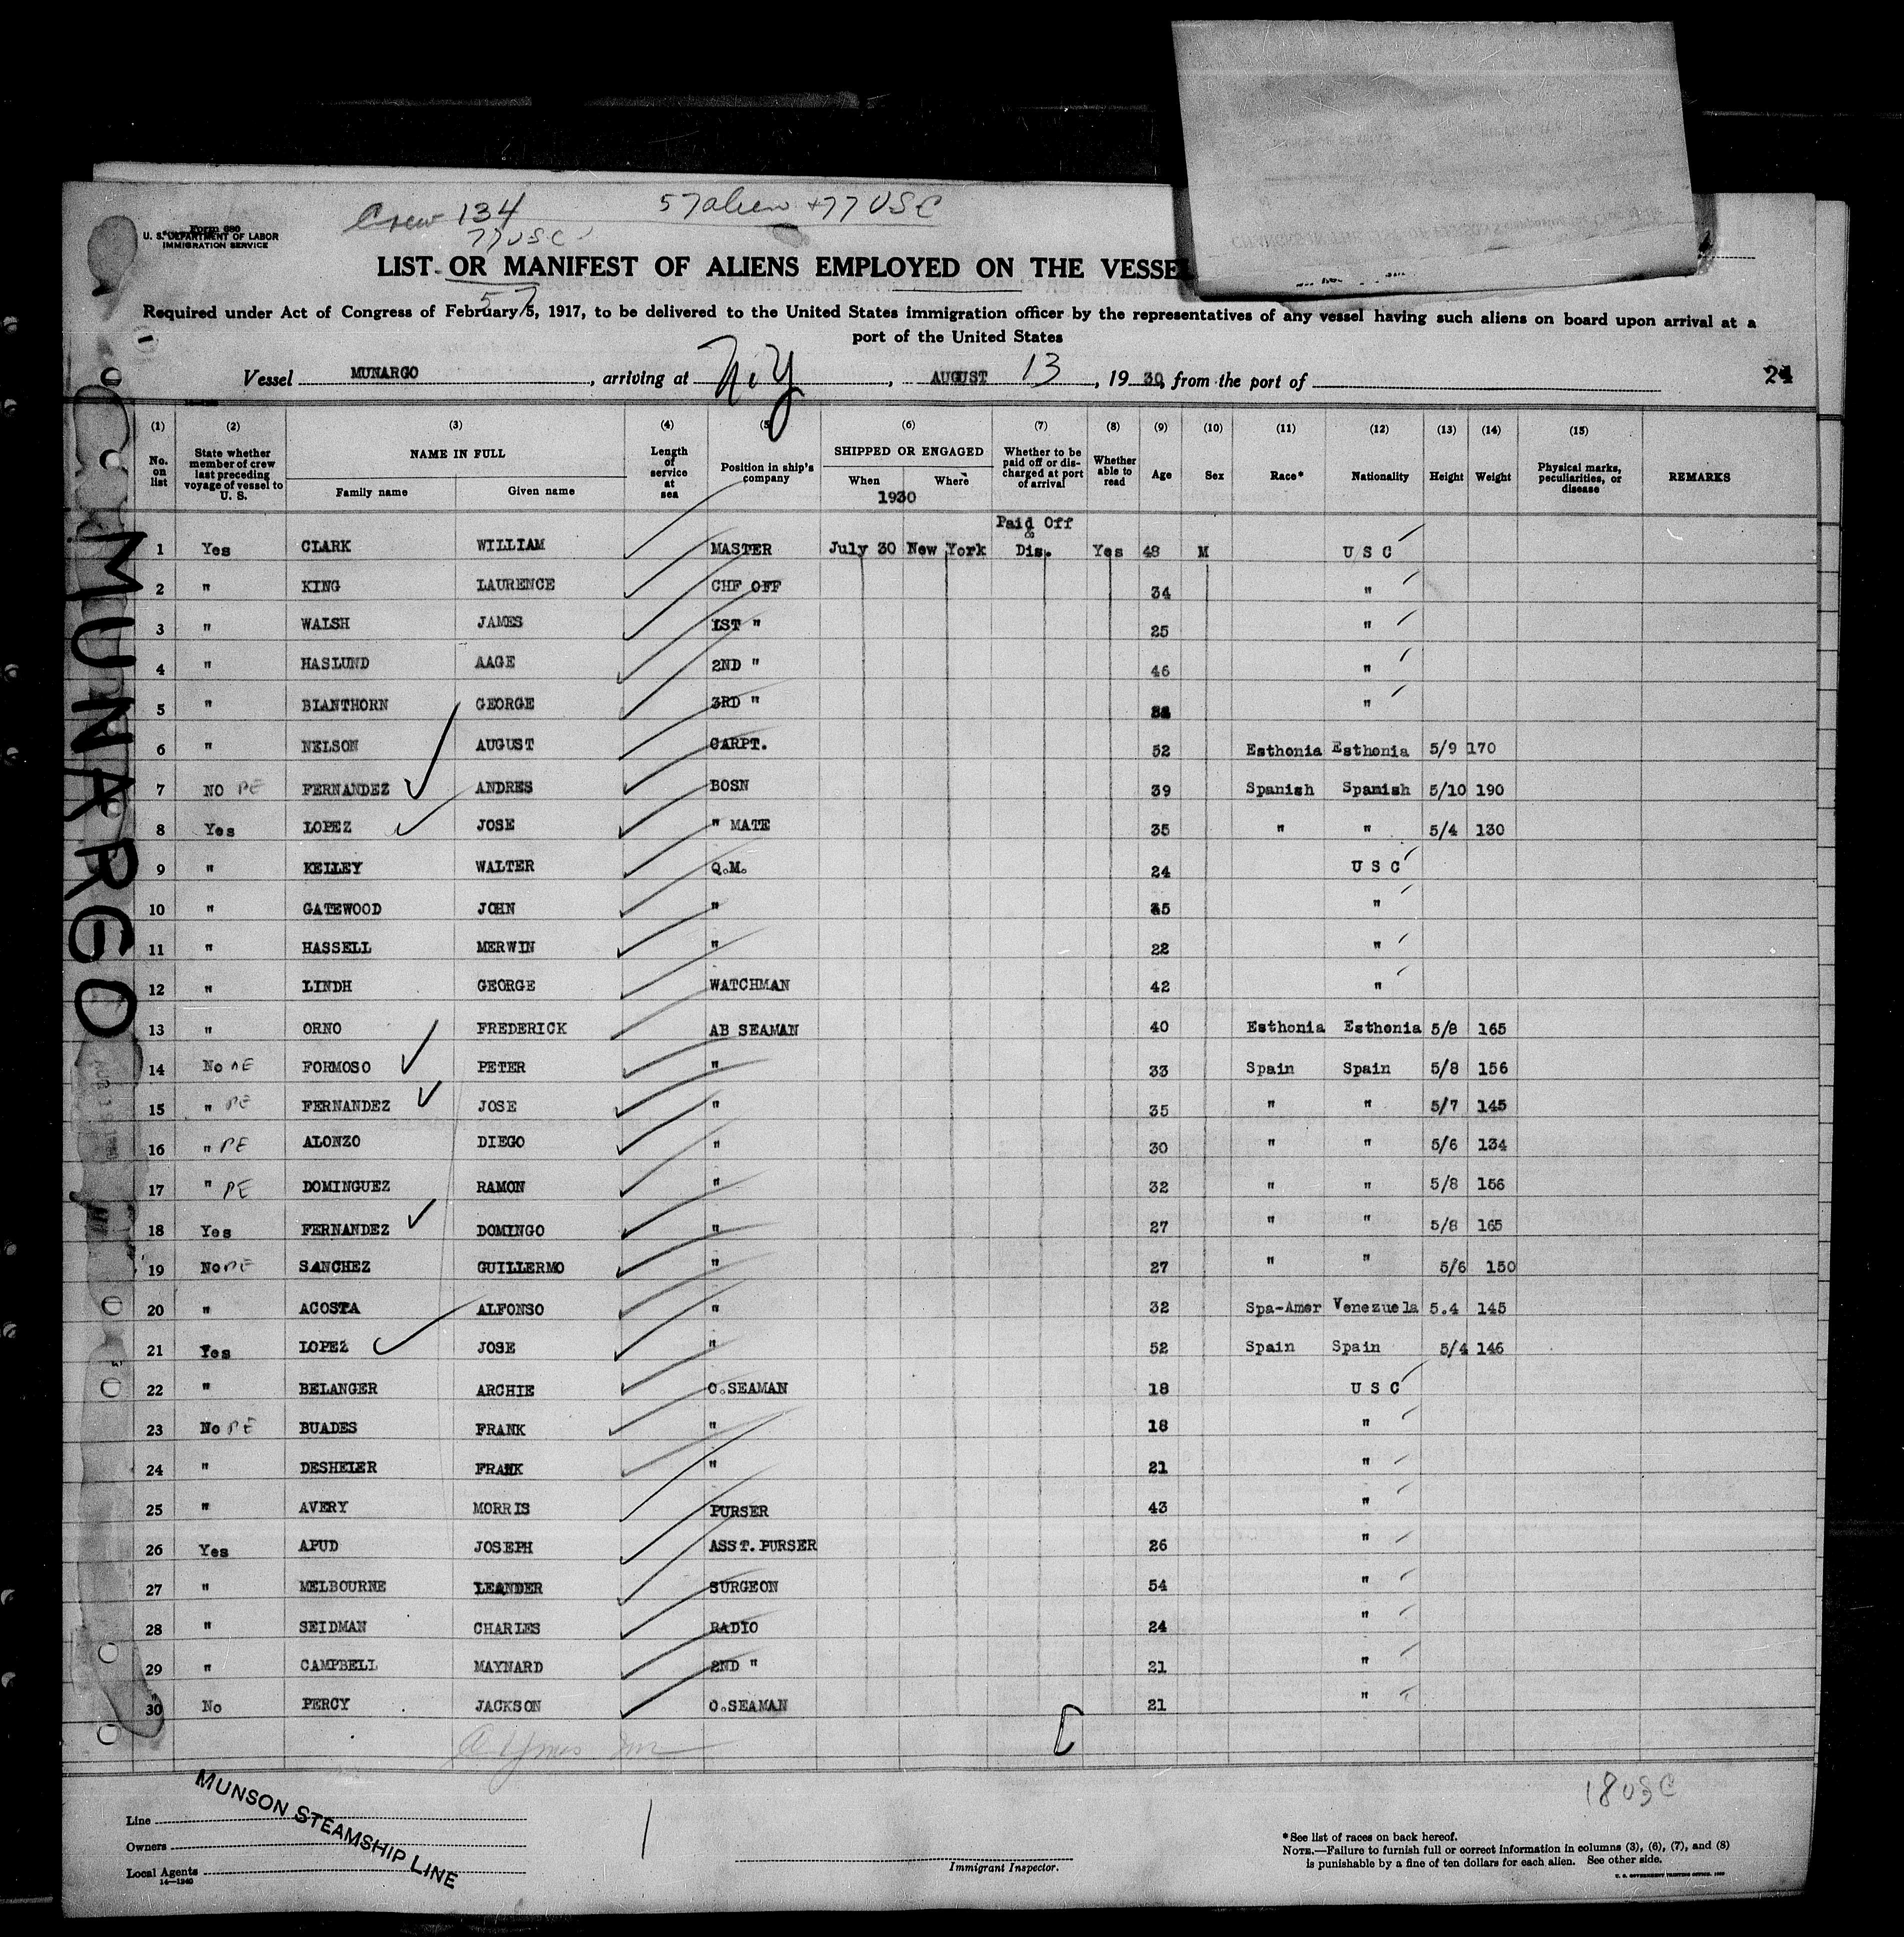 Crew 134
57 alien + 77 USC
77 USC
57
Form 680
U. S. DEPARTMENT OF LABOR
IMMIGRATION SERVICE
LIST OR MANIFEST OF ALIENS EMPLOYED ON THE VESSEL
Required under Act of Congress of February 5, 1917, to be delivered to the United States immigration officer by the representatives of any vessel having such aliens on board upon arrival at a
port of the United States
Vessel MUNARGO, arriving at N.Y, AUGUST 13, 1930, from the port of
24
MUNARGO
(1) (2) (3) (4) (5) (6) (7) (8) (9) (10) (11) (12) (13) (14) (15)
No. on list
State whether member of crew last preceding voyage of vessel to U. S.
NAME IN FULL
Family name Given name
Length of service at sea
Position in ship's company
SHIPPED OR ENGAGED
When Where
1930
Whether to be paid off or discharged at port of arrival
Whether able to read
Age
Sex
Race*
Nationality
Height
Weight
Physical marks, peculiarities, or disease
REMARKS
Paid Off
&
1 Yes CLARK WILLIAM MASTER July 30 New York Dis. Yes 48 M U S C
2 " KING LAURENCE CHF OFF 34 "
3 " WALSH JAMES 1ST " 25 "
4 " HASLUND AAGE 2ND " 46 "
5 " BLANTHORN GEORGE 3RD " "
6 " NELSON AUGUST CARPT. 52 Esthonia Esthonia 5/9 170
7 NO PE FERNANDEZ ANDRES BOSN 39 Spanish Spanish 5/10 190
8 Yes LOPEZ JOSE " MATE 35 " " 5/4 130
9 " KELLEY WALTER Q.M. 24 U S C
10 " GATEWOOD JOHN " "
11 " HASSELL MERWIN " 22 "
12 " LINDH GEORGE WATCHMAN 42 "
13 " ORNO FREDERICK AB SEAMAN 40 Esthonia Esthonia 5/8 165
14 No PE FORMOSO PETER " 33 Spain Spain 5/8 156
15 " PE FERNANDEZ JOSE " 35 " " 5/7 145
16 " PE ALONZO DIEGO " 30 " " 5/6 134
17 " PE DOMINGUEZ RAMON " 32 " " 5/8 156
18 Yes FERNANDEZ DOMINGO " 27 " " 5/8 165
19 No PE SANCHEZ GUILLERMO " 27 " " 5/6 150
20 " ACOSTA ALFONSO " 32 Spa-Amer Venezuela 5.4 145
21 Yes LOPEZ JOSE " 52 Spain Spain 5/4 146
22 " BELANGER ARCHIE O.SEAMAN 18 U S C
23 No PE BUADES FRANK " 18 "
24 " DESHEIER FRANK " 21 "
25 " AVERY MORRIS PURSER 43 "
26 Yes APUD JOSEPH ASST.PURSER 26 "
27 " MELBOURNE LEANDER SURGEON 54 "
28 " SEIDMAN CHARLES RADIO 24 "
29 " CAMPBELL MAYNARD 2ND " 21 "
30 No PERCY JACKSON O.SEAMAN 21 "
18 USC
MUNSON STEAMSHIP LINE
Line
Owners
Local Agents
14—1240
Immigrant Inspector.
*See list of races on back hereof.
NOTE.—Failure to furnish full or correct information in columns (3), (6), (7), and (8)
is punishable by a fine of ten dollars for each alien. See other side.